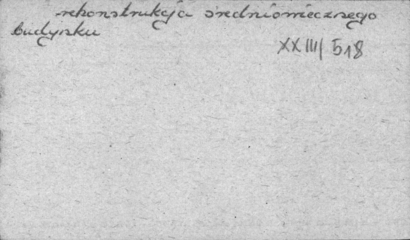 rekonstrukcja średniowiecznego
budynku
XXIII/518